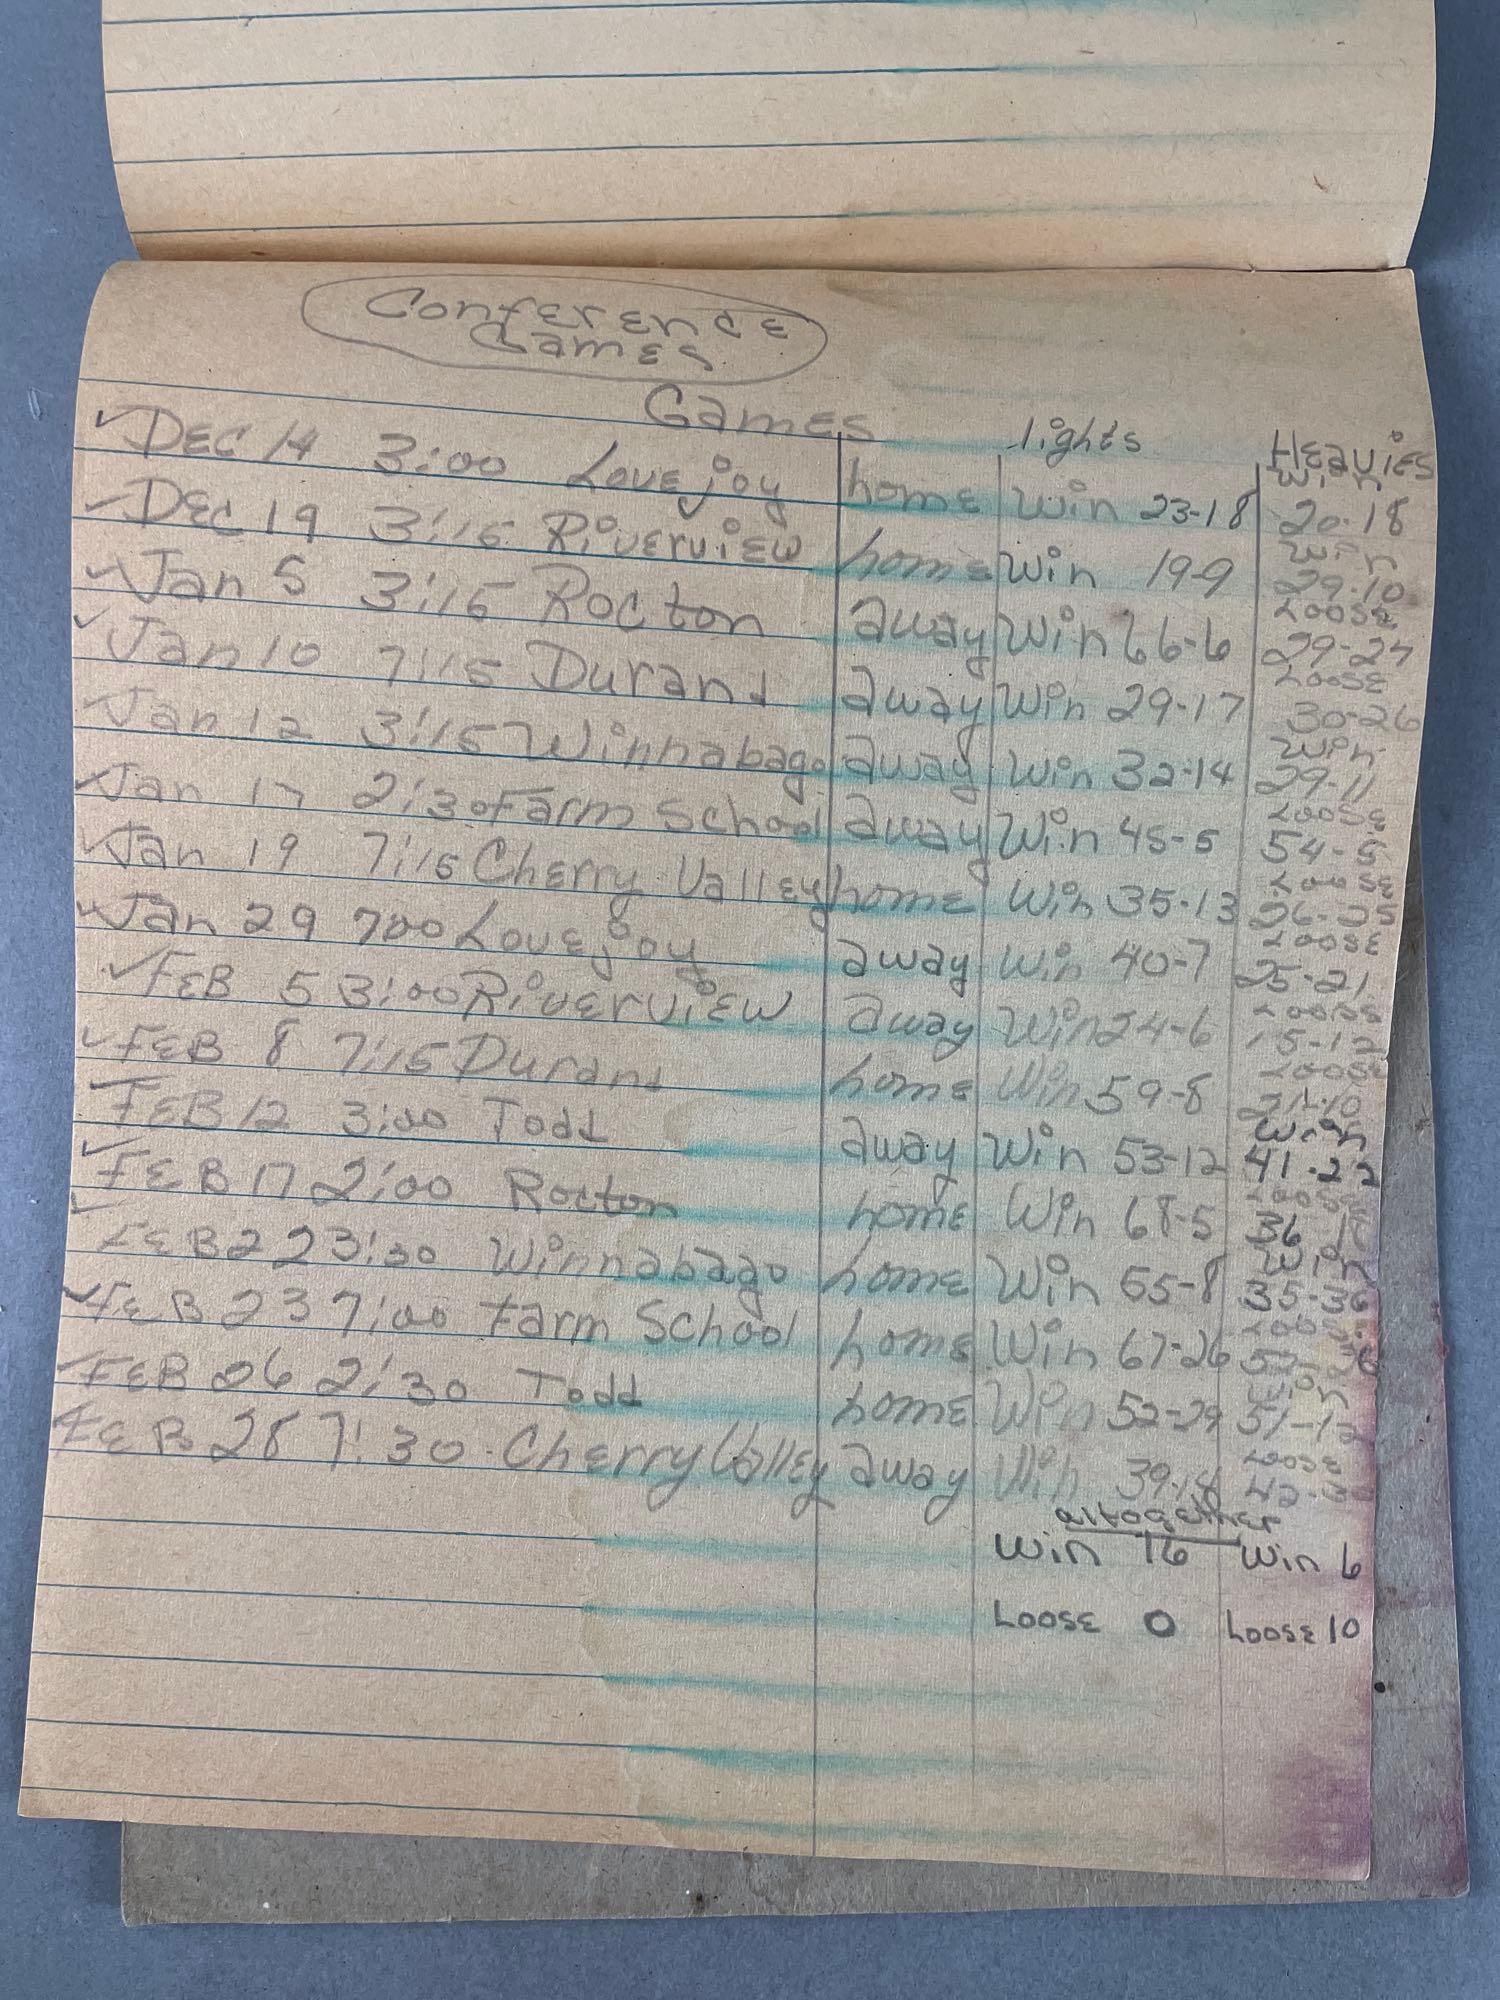 Conference
Games
Games lights Heavies
✓ DEC 14 3:00 Lovejoy home Win 23-18 Win 20-18
✓ DEC 19 3:15 Riverview home Win 19-9 Win 29-10
✓ Jan 5 3:15 Rocton away Win 66-6 Loose 29-27
✓ Jan 10 7:15 Durand away Win 29-17 Loose 30-26
Jan 12 3:15 Winnabago away Win 32-14 Win 29-11
✓ Jan 17 2:30 Farm School away Win 45-5 Loose 54-5
✓ Jan 19 7:15 Cherry Valley home Win 35-13 Loose 26-25
✓ Jan 29 700 Lovejoy away Win 40-7 Loose 25-21
✓ FEB 5 3:00 Riverview away Win 24-6 Loose 15-12
✓ FEB 8 7:15 Durand home Win 59-8 Loose
FEB 12 3:00 Todd away Win 53-12 Win 41-22
✓ FEB 17 2:00 Rocton home Win 68-5 Loose 36
FEB 22 3:30 Winnabago home Win 55-8 Win 35-36
✓ FEB 23 7:00 Farm School home Win 67-26 Loose
✓ FEB 26 2:30 Todd home Win 52-29 Win 51-12
FEB 28 7:30 Cherry Valley away Win Loose
altogether
Win 16 Win 6
Loose 0 Loose 10